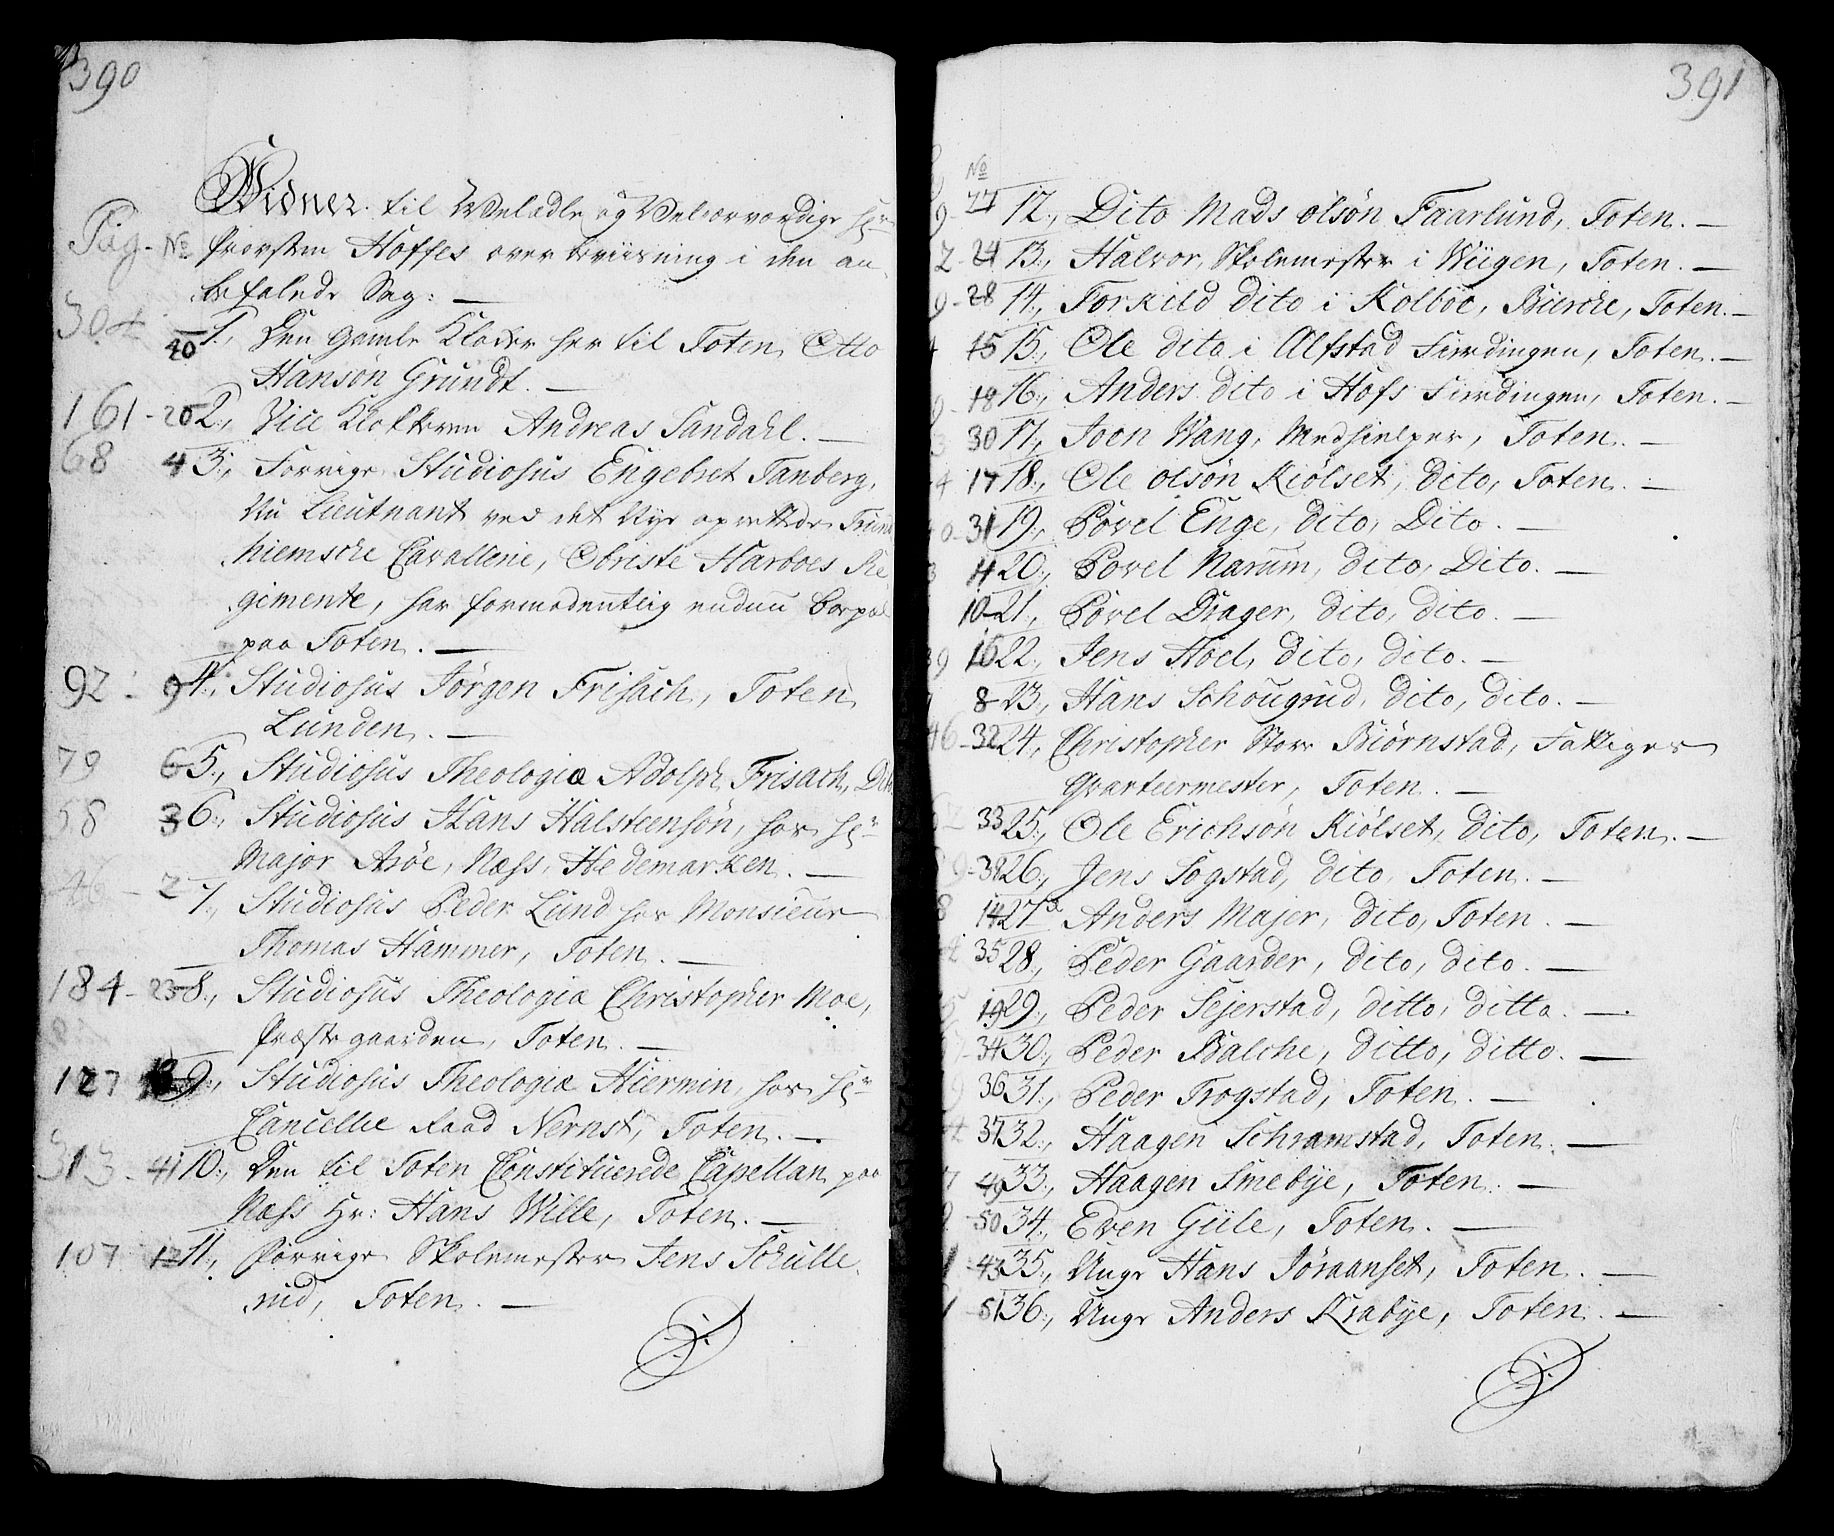 390
Vidner til Velædle og Velærværdige Hr
Pag. No Provsten Hoffes overbeviisning i den an
befalede Sag: —
304 40 1., Den gamle Klocker her til Toten, Otto
Hansøn Grundt. —
161 - 20 2., Vice Klokkeren Andreas Sandahl. —
68 4 3., Forrige Studiosus Engebret Tanberg,
Nu Lieutnant ved det Nye oprettede Trund
hiemske Cavallerie, Obriste Harboes Re
gimente, har formodentlig endnu
paa Toten. —
92 - 9 4., Studiosus Jørgen Frisach, Toten
Lunden. —
79 6 5., Studiosus Theologiæ Adolph Frisach, Dito
58 3 6., Studiosus Hans Halsteensøn, hos Hr
Major Arøe, Næss, Hedemarken. —
46 - 2 7., Studiosus Peder Lund hos Monsieur
Thomas Hammer, Toten. —
184 - 23 8., Studiosus Theologiæ Christopher Moe,
Præstegaarden, Toten. —
127 9., Studiosus Theologiæ Hiermin, hos Hr
Cancellie Raad Nernst, Toten. —
313 - 41 10., Den til Toten Constituerede Capellan paa
Næss Hr: Hans Wille, Toten. —
107 12 11., Forrige Skolemester Jens Schulle
rud, Toten. —
391
No
12., Dito Mads Olsøn Faarlund, Toten. —
24 13., Halvor, Skolemester i Wiigen, Toten. —
28 14., Torkild dito i Kolboe, Bierche, Toten. —
15 15., Ole dito i Alfstad Fierdingen, Toten. —
18 16., Anders dito i Hofs Fierdingen, Toten. —
30 17., Joen Wang, Medhielper, Toten. —
17 18., Ole Olsøn Kiølset, dito, Toten. —
31 19., Povel Enge, dito, Dito. —
20., Povel Narum, dito, Dito. —
10 21., Povel Drager, dito, dito. —
16 22., Jens Hoel, dito, dito. —
8 23., Hans Schougrud, dito, dito. —
32 24., Christopher Store Biørnstad, Fattiges
Qvarteermester, Toten. —
33 25., Ole Erichsøn Kiølset, dito, Toten. —
26., Jens Sogstad, dito, Toten. —
14 27., Anders Majer, dito, Toten. —
35 28., Peder Gaarder, dito, dito. —
19 29., Peder Sejerstad, ditto, ditto. —
34 30., Peder Balche, ditto, ditto. —
36 31., Peder Trogstad, Toten. —
37 32., Haagen Schramstad, Toten. —
49 33., Haagen Smebye, Toten. —
50 34., Even Güle, Toten. —
43 35., Unge Hans Jøraanset, Toten. —
51 36., Unge Anders Krabye, Toten. —